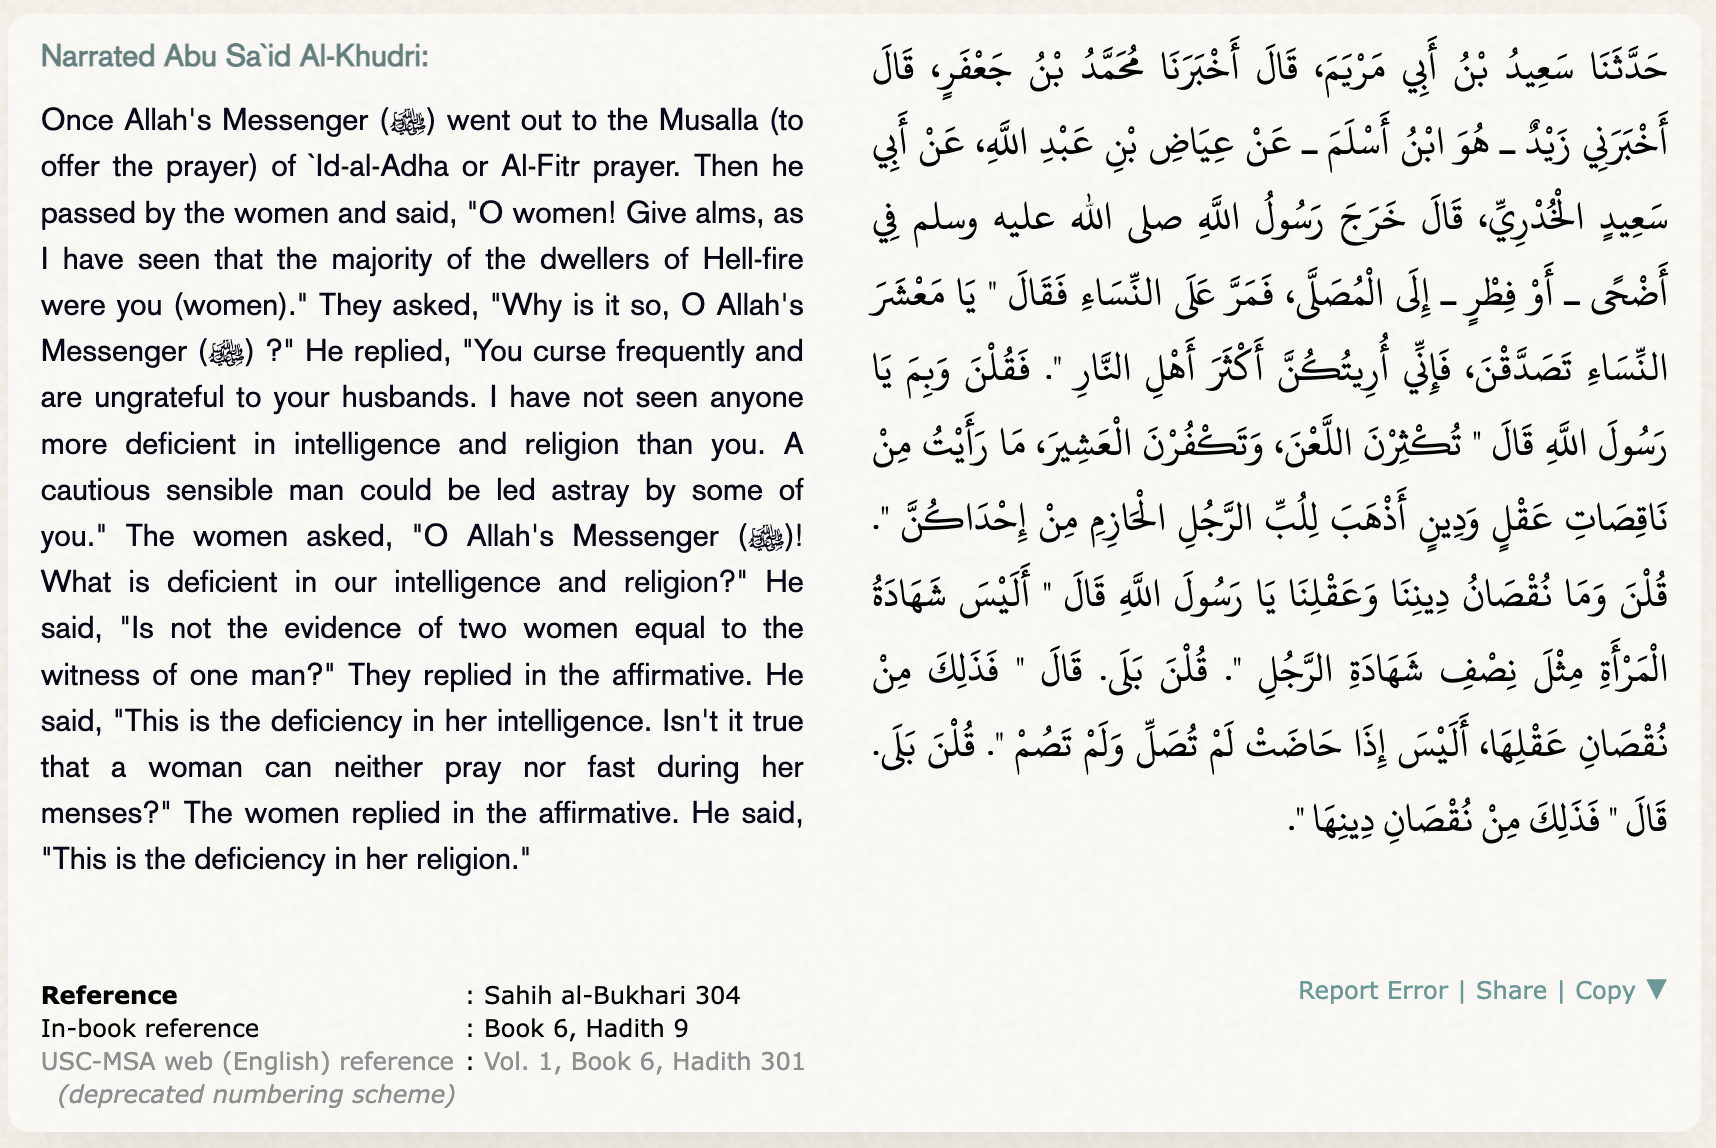 Narrated Abu Sa`id Al-Khudri:
Once Allah's Messenger (ﷺ) went out to the Musalla (to
offer the prayer) of `Id-al-Adha or Al-Fitr prayer. Then he
passed by the women and said, "O women! Give alms, as
I have seen that the majority of the dwellers of Hell-fire
were you (women)." They asked, "Why is it so, O Allah's
Messenger (ﷺ) ?" He replied, "You curse frequently and
are ungrateful to your husbands. I have not seen anyone
more deficient in intelligence and religion than you. A
cautious sensible man could be led astray by some of
you." The women asked, "O Allah's Messenger (ﷺ)!
What is deficient in our intelligence and religion?" He
said, "Is not the evidence of two women equal to the
witness of one man?" They replied in the affirmative. He
said, "This is the deficiency in her intelligence. Isn't it true
that a woman can neither pray nor fast during her
menses?" The women replied in the affirmative. He said,
"This is the deficiency in her religion."
حَدَّثَنَا سَعِيدُ بْنُ أَبِي مَرْيَمَ، قَالَ أَخْبَرَنَا مُحَمَّدُ بْنُ جَعْفَرٍ، قَالَ
أَخْبَرَنِي زَيْدٌ ـ هُوَ ابْنُ أَسْلَمَ ـ عَنْ عِيَاضِ بْنِ عَبْدِ اللَّهِ، عَنْ أَبِي
سَعِيدٍ الْخُدْرِيِّ، قَالَ خَرَجَ رَسُولُ اللَّهِ صلى الله عليه وسلم فِي
أَضْحًى ـ أَوْ فِطْرٍ ـ إِلَى الْمُصَلَّى، فَمَرَّ عَلَى النِّسَاءِ فَقَالَ " يَا مَعْشَرَ
النِّسَاءِ تَصَدَّقْنَ، فَإِنِّي أُرِيتُكُنَّ أَكْثَرَ أَهْلِ النَّارِ ". فَقُلْنَ وَبِمَ يَا
رَسُولَ اللَّهِ قَالَ " تُكْثِرْنَ اللَّعْنَ، وَتَكْفُرْنَ الْعَشِيرَ، مَا رَأَيْتُ مِنْ
نَاقِصَاتِ عَقْلٍ وَدِينٍ أَذْهَبَ لِلُبِّ الرَّجُلِ الْحَازِمِ مِنْ إِحْدَاكُنَّ ".
قُلْنَ وَمَا نُقْصَانُ دِينِنَا وَعَقْلِنَا يَا رَسُولَ اللَّهِ قَالَ " أَلَيْسَ شَهَادَةُ
الْمَرْأَةِ مِثْلَ نِصْفِ شَهَادَةِ الرَّجُلِ ". قُلْنَ بَلَى. قَالَ " فَذَلِكَ مِنْ
نُقْصَانِ عَقْلِهَا، أَلَيْسَ إِذَا حَاضَتْ لَمْ تُصَلِّ وَلَمْ تَصُمْ ". قُلْنَ بَلَى.
قَالَ " فَذَلِكَ مِنْ نُقْصَانِ دِينِهَا ".
Reference : Sahih al-Bukhari 304
In-book reference : Book 6, Hadith 9
USC-MSA web (English) reference : Vol. 1, Book 6, Hadith 301
(deprecated numbering scheme)
Report Error | Share | Copy ▼